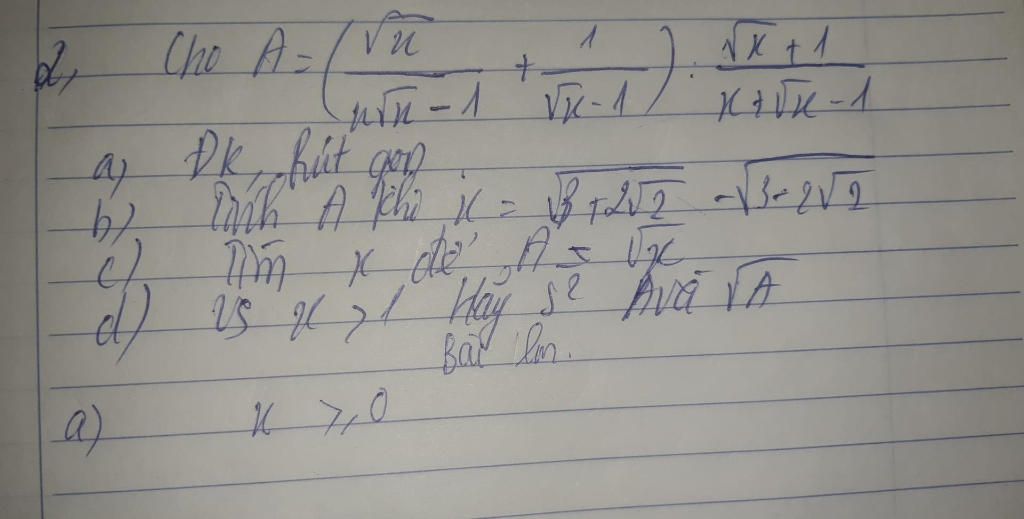 2, Cho A = (√x / x√x - 1 + 1 / √x - 1) : √x + 1 / x + √x - 1
a) ĐK, Rút gọn.
b) Tính A khi x = √3 + 2√2 - √3 - 2√2
c) Tìm x để A = √x
d) Vs x > 1 Hãy s² A và √A
Bài làm.
a) x ≥ 0